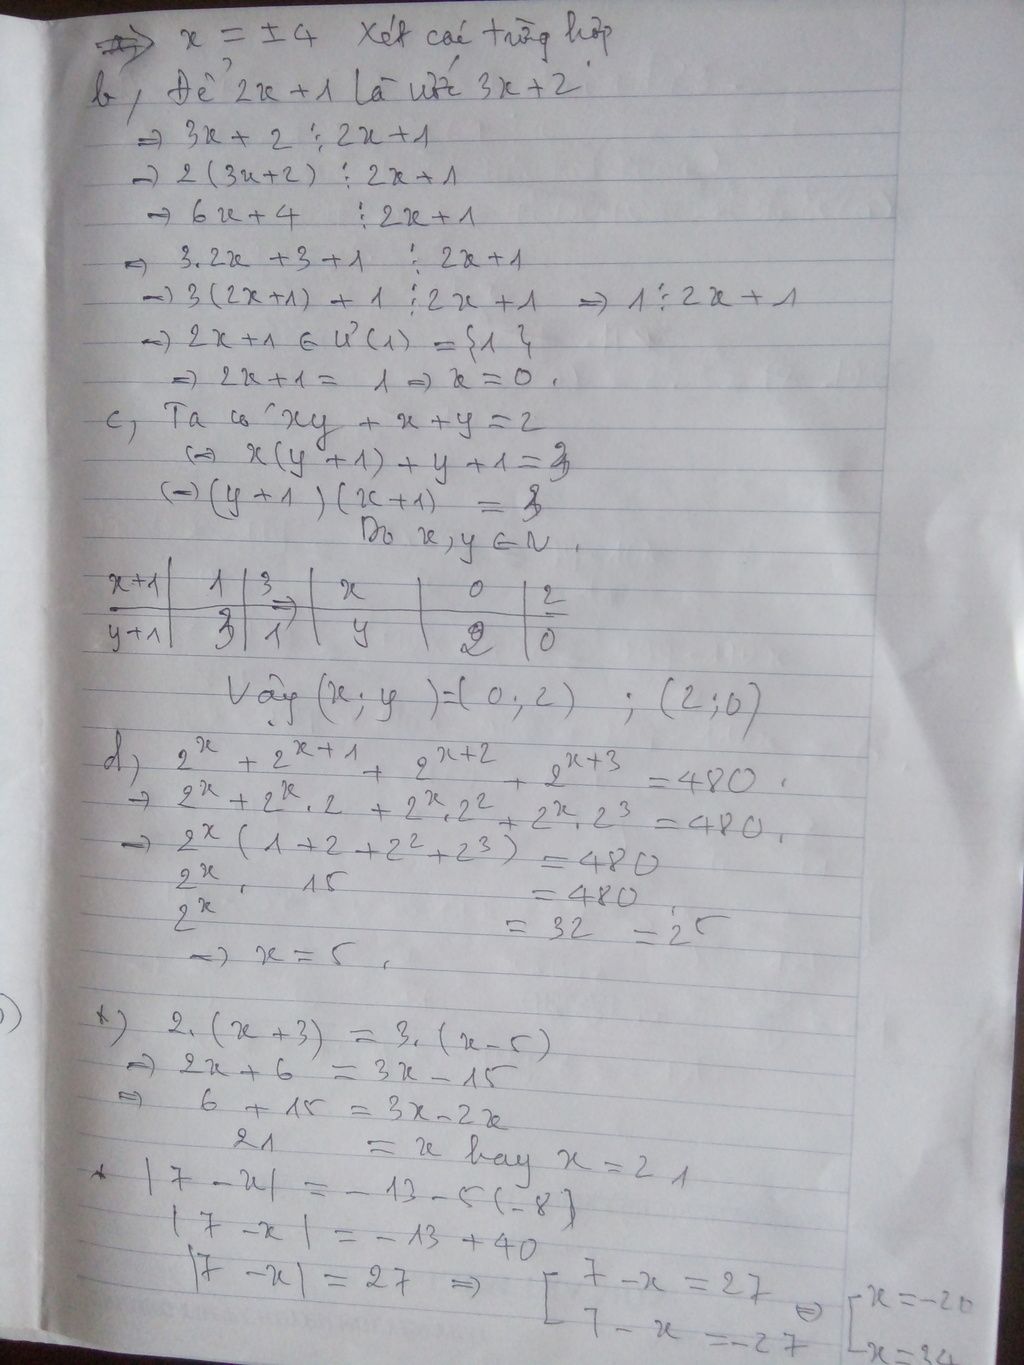 => x = ±4 Xét các trường hợp
b, Để 2x+1 là ước 3x+2
=> 3x + 2 ⋮ 2x+1
=> 2(3x+2) ⋮ 2x+1
=> 6x+4 ⋮ 2x+1
=> 3.2x +3+1 ⋮ 2x+1
=> 3(2x+1) + 1 ⋮ 2x+1 => 1 ⋮ 2x+1
=> 2x+1 ∈ Ư(1) = {1}
=> 2x+1 = 1 => x = 0.
c, Ta có xy + x+y = 2
<=> x(y+1) + y+1 = 3
<=> (y+1)(x+1) = 3
Do x,y ∈ N.
x+1 | 1 | 3 => | x | 0 | 2
y+1 | 3 | 1 | y | 2 | 0
Vậy (x; y) = (0; 2) ; (2; 0)
d, 2^x + 2^{x+1} + 2^{x+2} + 2^{x+3} = 480.
=> 2^x + 2^x.2 + 2^x.2^2 + 2^x.2^3 = 480.
=> 2^x (1+2+2^2+2^3) = 480
2^x . 15 = 480.
2^x = 32 = 2^5
=> x = 5.
*) 2.(x+3) = 3.(x-5)
=> 2x+6 = 3x-15
=> 6 + 15 = 3x-2x
21 = x hay x = 21
* |7 - x| = -13 - 5(-8)
|7 - x| = -13 + 40
|7 - x| = 27 => [ 7 - x = 27 <=> [ x = -20
7 - x = -27 x = 34